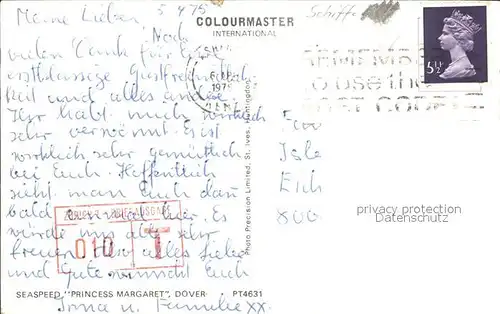 Meine Lieben, 5 4 75
Noch
vielen Dank für Eure
erstklassige Gastfreundlich-
keit und alles andere.
Ihr habt mich wirklich
sehr verwöhnt. Es ist
wirklich sehr gemütlich
bei Euch. Hoffentlich
sieht man Euch dann
bald einmal hier. Es
würde uns alle sehr
freuen. Also alles Liebe
und Gute wünscht Euch
Irma u. Familie xx
COLOURMASTER
INTERNATIONAL
Schiffe
1975
KENT
REMEMBER
TO USE THE
POST CODE
5½
Photo Precision Limited, St. Ives, Huntingdon
010
T
privacy protection
Datenschutz
800
SEASPEED "PRINCESS MARGARET", DOVER PT4631